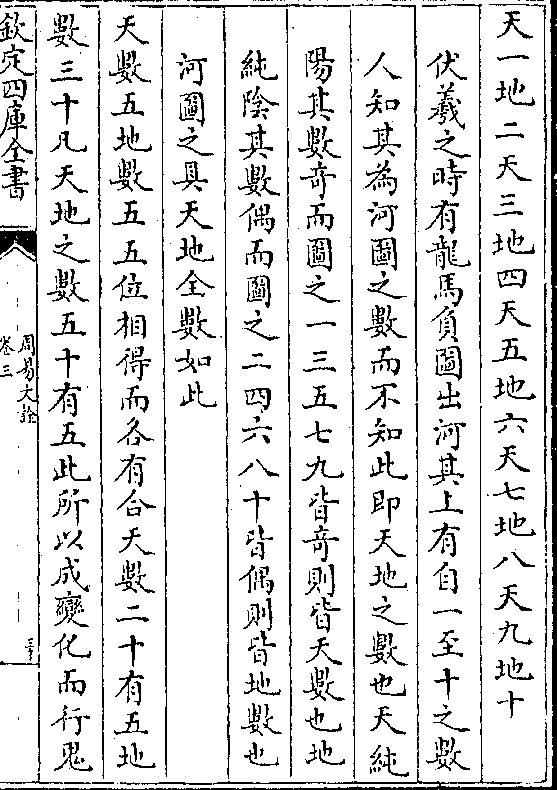 天一地二天三地四天五地六天七地八天九地十
伏羲之時有龍馬負圖出河其上有自一至十之數
人知其為河圖之數而不知此即天地之數也天純
陽其數竒而圖之一三五七九皆竒則皆天數也地
純陰其數偶而圖之二四六八十皆偶則皆地數也
河圖之具天地全數如此
天數五地數五五位相得而各有合天數二十有五地
數三十凡天地之數五十有五此所以成變化而行鬼
欽定四庫全書
周易大詮
卷三